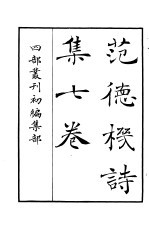 范德機詩
集七卷
四部叢刊初編集部